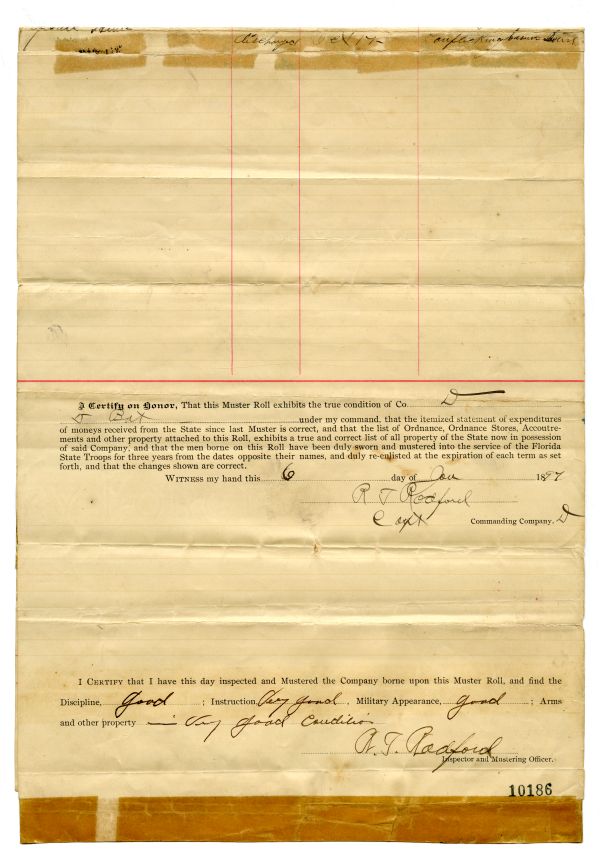 discharged Oct 17
I Certify on Honor, That this Muster Roll exhibits the true condition of Co. D
5 Bat under my command, that the itemized statement of expenditures
of moneys received from the State since last Muster is correct, and that the list of Ordnance, Ordnance Stores, Accoutre-
ments and other property attached to this Roll, exhibits a true and correct list of all property of the State now in possession
of said Company, and that the men borne on this Roll have been duly sworn and mustered into the service of the Florida
State Troops for three years from the dates opposite their names, and duly re-enlisted at the expiration of each term as set
forth, and that the changes shown are correct.
WITNESS my hand this 6 day of Jan 1897
R T Radford
Capt Commanding Company. D
I CERTIFY that I have this day inspected and Mustered the Company borne upon this Muster Roll, and find the
Discipline, good ; Instruction, Very good , Military Appearance, good ; Arms
and other property — in Very good Condition
R. T. Radford
Inspector and Mustering Officer.
10186